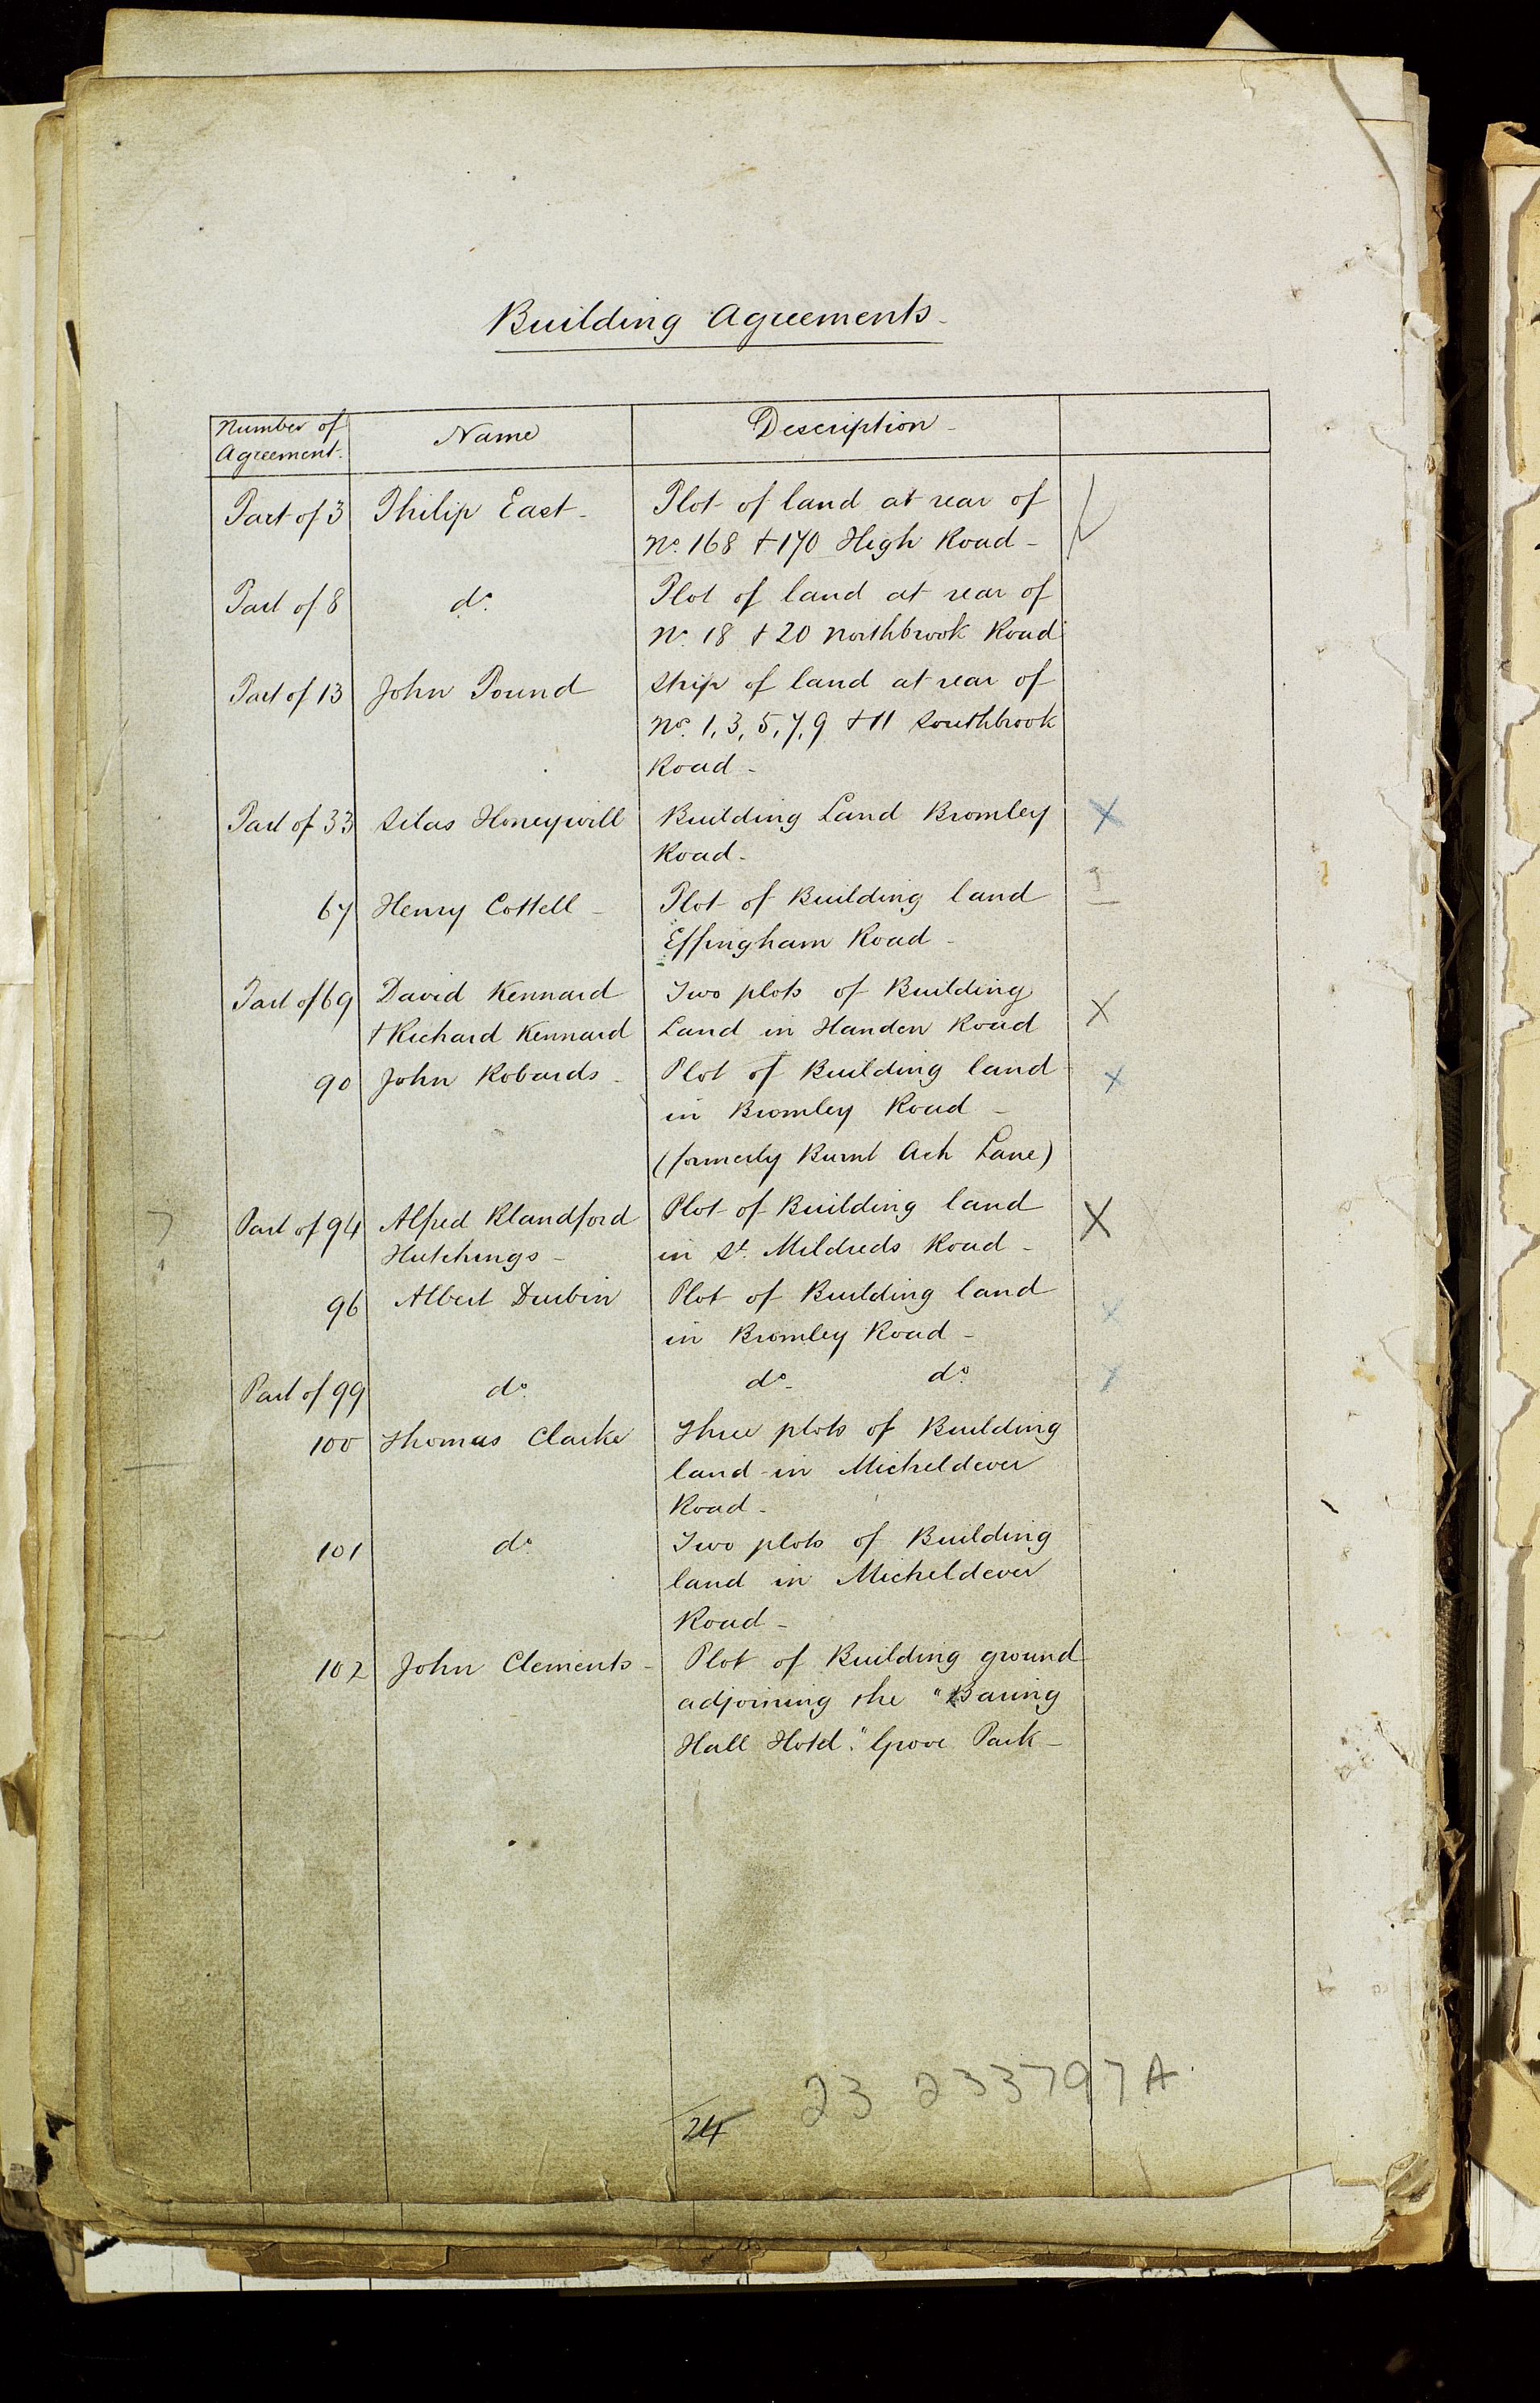 Building Agreements-
Number of Agreement. Name Description-
Part of 3 Philip East- Plot of land at rear of
No. 168 + 170 High Road-
Part of 8 do. Plot of land at rear of
No. 18 + 20 Northbrook Road
Part of 13 John Pound Strip of land at rear of
Nos. 1, 3, 5, 7, 9 + 11 Southbrook
Road-
Part of 33 Silas Honeywill Building Land Bromley
Road-
67 Henry Cottell- Plot of Building land
Effingham Road-
Part of 69 David Kennard Two plots of Building
+ Richard Kennard Land in Handen Road
90 John Robards- Plot of Building land
in Bromley Road-
(formerly Burnt Ash Lane)
Part of 94 Alfred Blandford Plot of Building land
Hutchings- in St. Mildreds Road-
96 Albert Durbin Plot of Building land
in Bromley Road-
Part of 99 do. do. do.
100 Thomas Clarke Three plots of Building
land in Micheldever
Road-
101 do. Two plots of Building
land in Micheldever
Road-
102 John Clements- Plot of Building ground
adjoining the "Baring
Hall Hotel." Grove Park-
23 233797A
24